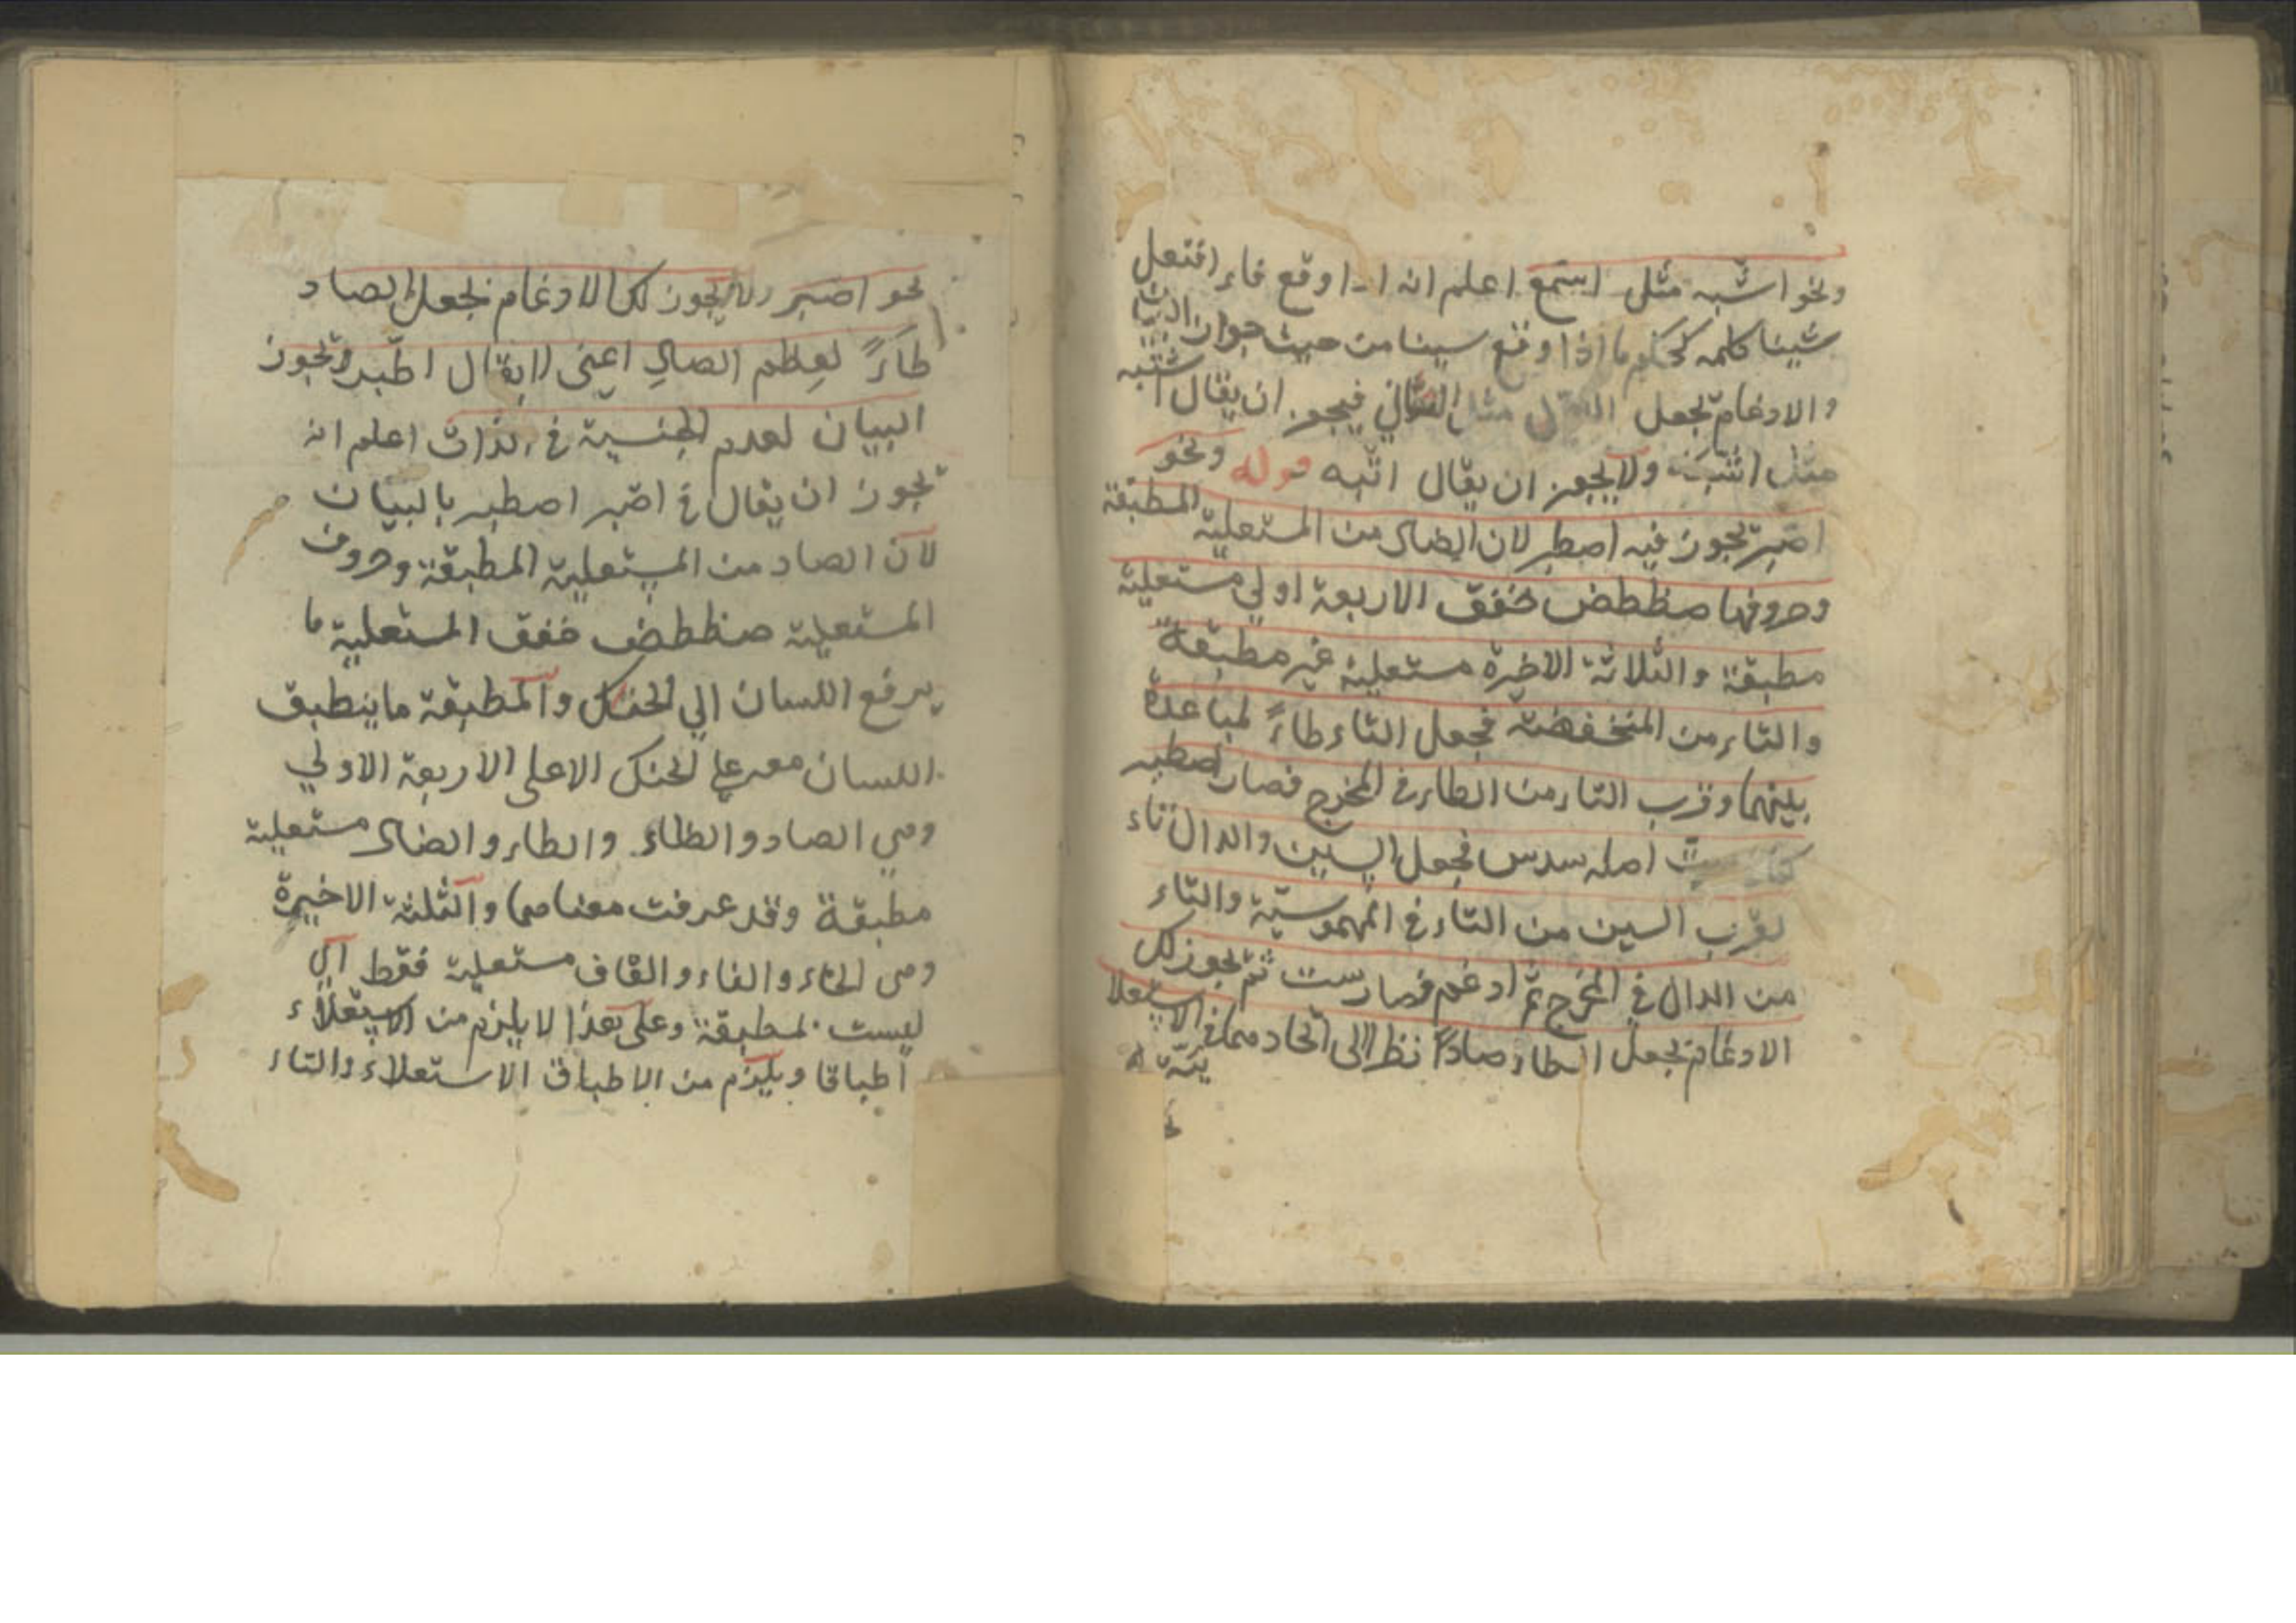 ونحو اشبه مثل استمع اعلم انه اذا وقع فاء افتعل
شينا كلمه كحكم ما اذا وقع سينا من حيث جواز البيان
والادغام بجعل الاول مثل الثاني فيجوز ان يقال اشبه
مثل اشتبه ولا يجوز ان يقال اتبه قوله ونحو
اصبر يجوز فيه اصطبر لان الصاد من المستعلية المطبقة
وحروفها صظطض خغق الاربعة اولي مستعلية
مطبقة والثلاثة الاخيرة مستعلية غير مطبقة
والتاء من المنخفضة فجعل التاء طاءً لمباعدة
بينهما وقرب التاء من الطاء في المخرج فصار اصطبر
ستّ اصله سدس فجعل السين والدال تاء
لقرب السين من التاء في المهموسيّة والتاء
من الدال في المخرج ثم ادغم فصار ست ثم يجوز لك
الادغام بجعل الطاء صادًا نظرا الى اتحادهما في الاستعلا
ئيّة
نحو اصبر ولا يجوز لك الادغام بجعل الصاد
طاءً لعظم الصاد اعني لا يقال اطّبر ويجوز
البيان لعدم الجنسية في الذات اعلم انه
يجوز ان يقال في اصّبر اصطبر بالبيان
لان الصاد من المستعلية المطبقة وحروف
المستعلية صظطض خغق المستعلية ما
يرفع اللسان الي الحنك والمطبقة ما ينطبق
اللسان معه علي الحنك الاعلى الاربعة الاولي
وهي الصاد والظاء والطاء والضاد مستعلية
مطبقة وقد عرفت معناهما والثلثة الاخيرة
وهي الخاء والغاء والقاف مستعلية فقط اي
ليست بمطبقة وعلى هذا لا يلزم من الاستعلاء
اطباقا ويلزم من الاطباق الاستعلاء والتاء